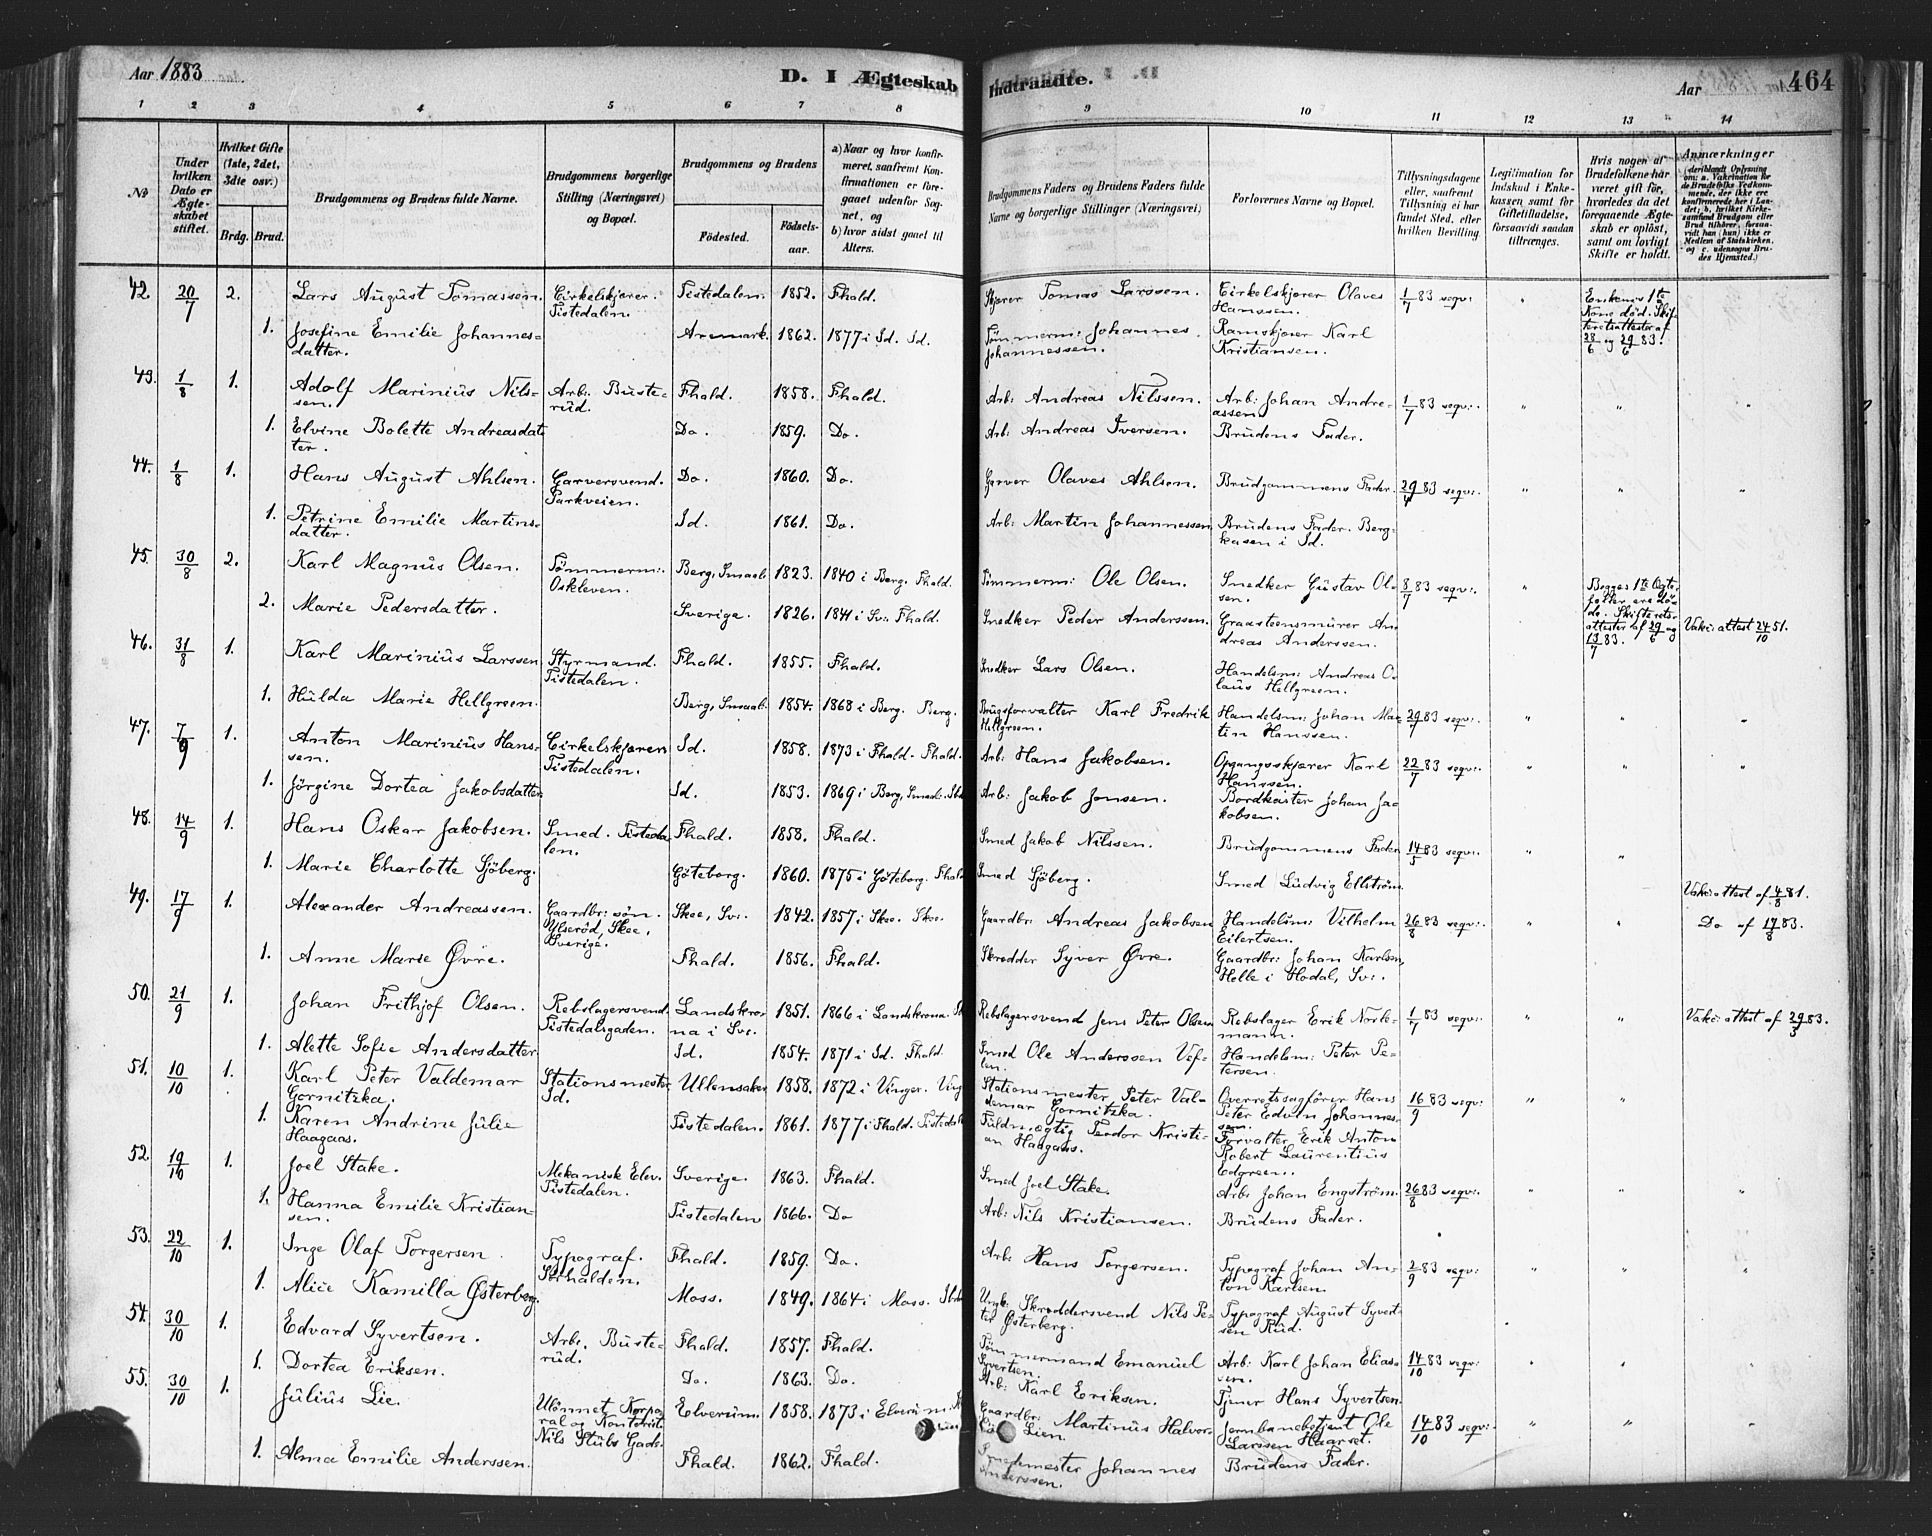 Aar 1883
D. I Ægteskab Indtraadte.
Aar 464
1 2 3 4 5 6 7 8 9 10 11 12 13 14
No
Under hvilken Dato er Ægteskabet stiftet.
Hvilket Gifte (1ste, 2det, 3die osv.)
Brdg. Brud.
Brudgommens og Brudens fulde Navne.
Brudgommens borgerlige Stilling (Næringsvei) og Bopæl.
Brudgommens og Brudens
Fødested. Fødselsaar.
a) Naar og hvor konfirmeret, saafremt Konfirmationen er foregaaet udenfor Sognet, og b) hvor sidst gaaet til Alters.
Brudgommens Faders og Brudens Faders fulde Navne og borgerlige Stillinger (Næringsvei)
Forlovernes Navne og Bopæl.
Tillysningsdagene eller, saafremt Tillysning ei har fundet Sted, efter hvilken Bevilling.
Legitimation for Indskud i Enkekassen samt for Giftetilladelse, forsaavidt saadan tiltrænges.
Hvis nogen af Brudefolkene har været gift før, hvorledes da det foregaaende Ægteskab er opløst, samt om lovligt Skifte er holdt.
Anmærkninger
42. 20/7 2. Lars August Tomassen. Cirkelskjærer. Tistedalen. Tistedalen. 1852. Fhald. Skjærer Tomas Larssen. Cirkelskjærer Olaves Hanssen. 1/7 83 segv: " Enkens 1te Kone død. Skifteretsattester af 28/6 og 29/6 83.
1. Josefine Emilie Johannesdatter. Aremark. 1862. 1877 i Id. Id. Tømmerm: Johannes Johannessen. Ramskjærer Karl Kristiansen.
43. 1/8 1. Adolf Marinius Nilssen. Arb: Busterud. Fhald. 1858. Fhald. Arb: Andreas Nilssen. Arb: Johan Andreassen. 1/7 83 segv: " " "
1. Elvine Bolette Andreasdatter. Do. 1859. Do. Arb: Andreas Iversen. Brudens Fader.
44. 1/8 1. Hans August Ahlsen. Garversvend. Parkveien. Do. 1860. Do. Garver Olaves Ahlsen. Brudgommens Fader. 83 segv: " " "
1. Petrine Emilie Martinsdatter. Id. 1861. Do. Arb: Martin Johannessen. Brudens Fader. Bergkasen i Id.
45. 30/8 2. Karl Magnus Olsen. Tømmerm: Oskleven. Berg, Smaal. 1823. 1840 i Berg. Fhald. Tømmerm: Ole Olsen. Snedker Gustav Olsen. 8/7 83 segv: " Begges 1te Ægtefeller ere døde. Skifteretsattester af 29/6 og 13/7 83.
2. Marie Pedersdatter. Sverige. 1826. 1841 i Sv: Fhald. Snedker Peder Anderssen. Graasteensmurer Andreas Anderssen. Vakc: attest 24/10 51.
46. 31/8 1. Karl Marinius Larssen Styrmand. Tistedalen. Fhald. 1855. Fhald. Snedker Lars Olsen. Handelsm: Andreas Olaus Hellgreen.
1. Hulda Marie Hellgreen. Berg, Smaal. 1854. 1868 i Berg. Berg. Brugsforvalter Karl Fredrik Hellgreen. Handelsm: Johan Martin Hanssen. 29/7 83 segv: " " "
47. 7/9 1. Anton Marinius Hanssen. Cirkelskjærer Tistedalen. Id. 1858. 1873 i Fhald. Fhald. Arb: Hans Jakobsen. Opgangsskjærer Karl Hanssen. 22/7 83 segv: " " "
1. Jörgine Dortea Jakobsdatter. Id. 1853. 1869 i Berg, Smaal. Arb: Jakob Jonsen. Bordkaster Johan Jakobsen.
48. 14/9 1. Hans Oskar Jakobsen. Smed. Tistedalen. Fhald. 1858. Fhald. Smed Jakob Nilssen. Brudgommens Fader 14/5 83 segv: " "
1. Marie Charlotte Sjöberg. Göteborg. 1860. 1875 i Göteborg. Fhald Smed Sjöberg. Smed Ludvig Ellström. Vakc: attest af 4/8 81.
49. 17/9 1. Alexander Andreassen. Gaardbr: søn. Ylseröd, Skee, Sverige. Skee, Sv: 1842. 1857 i Skee. Skee. Gaardbr: Andreas Jakobsen Handelsm: Vilhelm Eilertsen. 26/8 83 segv: " " Do af 17/8 83.
1. Anne Marie Øvre. Fhald. 1856. Fhald. Skrædder Syver Øvre. Gaardbr: Johan Karlsen, Helle i Hodal, Sv:
50. 21/9 1. Johan Frithjof Olsen. Rebslagersvend. Tistedalsgaden. Landskrona i Sve. 1851. 1866 i Landskrona. Rebslagersvend Jens Peter Olsen Rebslager Erik Norlemann. 1/7 83 segv: " " Vakc: attest af 29/3 83.
1. Alette Sofie Andersdatter Id. 1854. 1871 i Id. Fhald. Smed Ole Anderssen Veflen. Handelsm: Peter Petersen.
51. 10/10 1. Karl Peter Valdemar Gornitzka. Stationsmester Id. Ullensaker 1858. 1872 i Vinger. Stationsmester Peter Valdemar Gornitzka. Overretssagfører Hans Peter Edvin Johannessen. 16/9 83 segv: " "
1. Karen Andrine Julie Haagaas. Tistedalen. 1861. 1877 i Fhald. Tistedalen Fuldmægtig Teodor Kristian Haagaas. Forvalter Erik Anton Robert Laurentius Edgreen.
52. 19/10 1. Joel Stake. Mekanisk Elev. Tistedalen. Sverige. 1863. Fhald. Smed Joel Stake. Arb: Johan Engström. 26/8 83 segv: " " "
1. Hanna Emilie Kristiansen. Tistedalen 1866. Do Arb: Nils Kristiansen. Brudens Fader.
53. 22/10 1. Inge Olaf Torgersen. Typograf. Sørhalden. Fhald. 1859. Do. Arb: Hans Torgersen. Typograf Johan Anton Karlsen. 2/9 83 segv: " " "
1. Alice Kamilla Østerberg. Moss. 1849. 1864 i Moss. Skræddersvend Nils Petter Østerberg. Typograf August Syvertsen Rud.
54. 30/10 1. Edvard Syvertsen. Arb: Busterud. Fhald. 1857. Fhald. Tømmermand Emanuel Syvertsen. Arb: Karl Johan Eliassen. 14/10 83 segv: " " "
1. Dortea Eriksen. Do. 1863. Do. Arb: Karl Eriksen. Tjener Hans Syvertsen.
55. 30/10 1. Julius Lie. Ulønnet Korporal og Kontorist. Nils Stubs Gade. Elverum. 1858. 1873 i Elverum. Gaardbr: Martinus Halvor Lien. Jernbanebetjent Ole Larssen Haarset. 14/10 83 segv: " " "
1. Alma Emilie Anderssen. Fhald. 1862. Fhald. Johannes Anderssen. Brudens Fader.